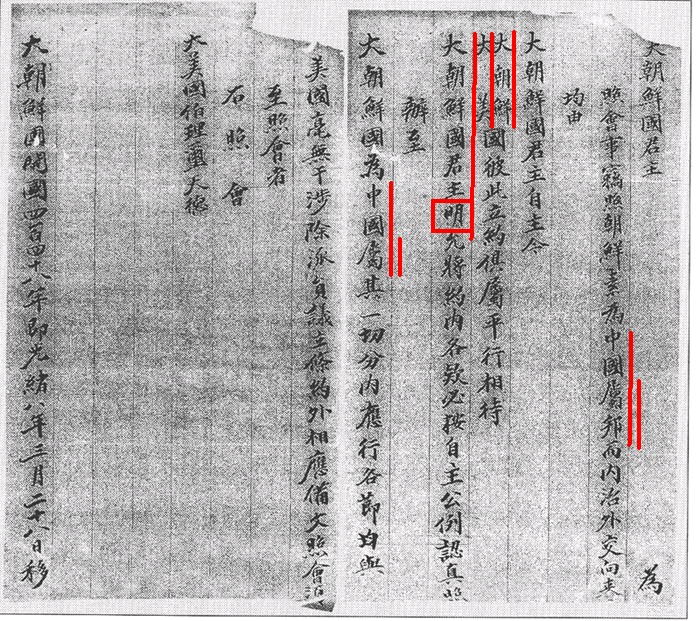 大朝鮮國君主 為
照會事竊照朝鮮素為中國屬邦而內治外交向來
均由
大朝鮮國君主自主今
大朝鮮
大美國彼此立約俱屬平行相待
大朝鮮國君主明允將約內各欵必按自主公例認真照
辦至
大朝鮮國為中國屬其一切分內應行各節均與
美國毫無干涉除派員議立條約外相應備文照會
至照會者
右照會
大美國伯理璽天德
大朝鮮國開國四百四十八年即光緒八年三月二十八日移